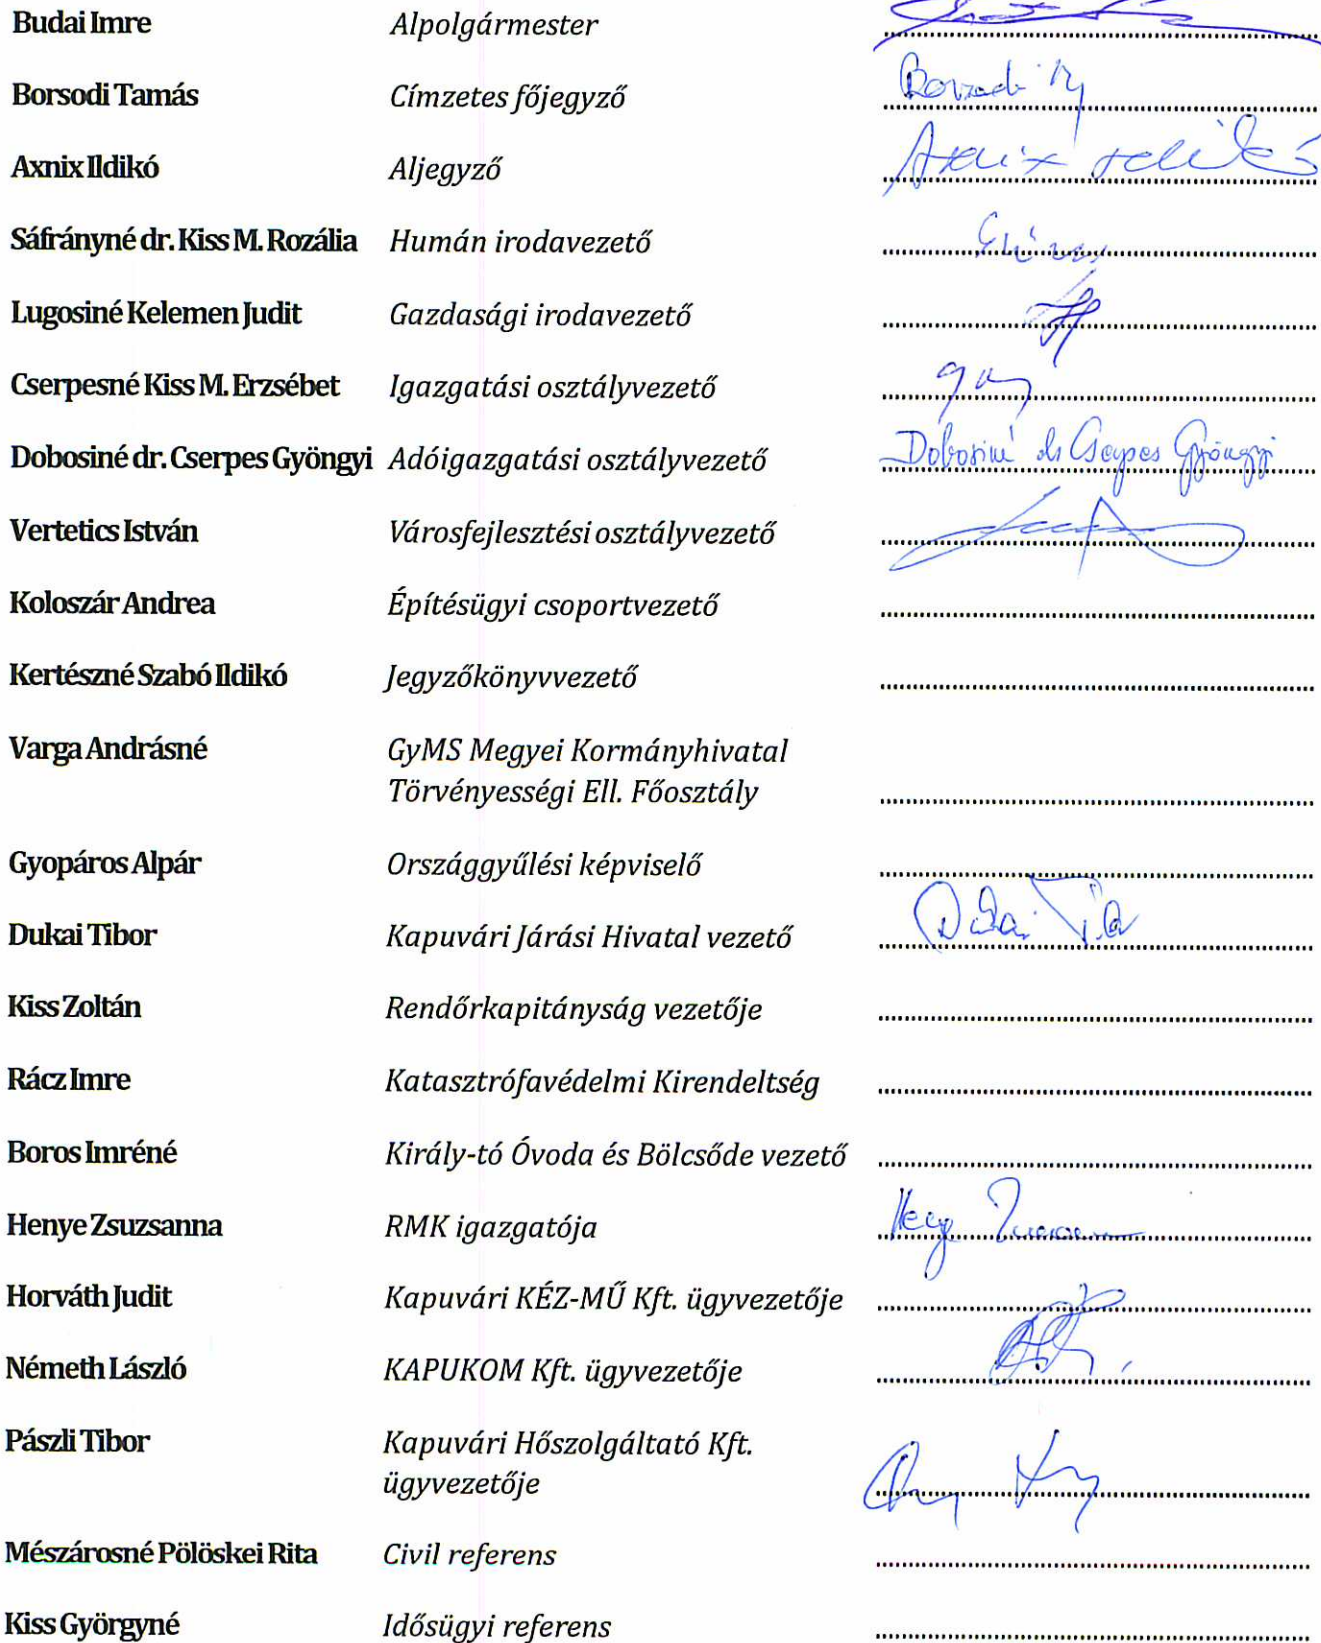 Budai Imre Alpolgármester
Borsodi Tamás Címzetes főjegyző
Axnix Ildikó Aljegyző Axnix Ildikó
Sáfrányné dr. Kiss M. Rozália Humán irodavezető
Lugosiné Kelemen Judit Gazdasági irodavezető
Cserpesné Kiss M. Erzsébet Igazgatási osztályvezető
Dobosiné dr. Cserpes Gyöngyi Adóigazgatási osztályvezető Dobosiné dr Cserpes Gyöngyi
Vertetics István Városfejlesztési osztályvezető
Koloszár Andrea Építésügyi csoportvezető
Kertészné Szabó Ildikó Jegyzőkönyvvezető
Varga Andrásné GyMS Megyei Kormányhivatal
Törvényességi Ell. Főosztály
Gyopáros Alpár Országgyűlési képviselő
Dukai Tibor Kapuvári Járási Hivatal vezető
Kiss Zoltán Rendőrkapitányság vezetője
Rácz Imre Katasztrófavédelmi Kirendeltség
Boros Imréné Király-tó Óvoda és Bölcsőde vezető
Henye Zsuzsanna RMK igazgatója
Horváth Judit Kapuvári KÉZ-MŰ Kft. ügyvezetője
Németh László KAPUKOM Kft. ügyvezetője
Pászli Tibor Kapuvári Hőszolgáltató Kft.
ügyvezetője
Mészárosné Pölöskei Rita Civil referens
Kiss Györgyné Idősügyi referens